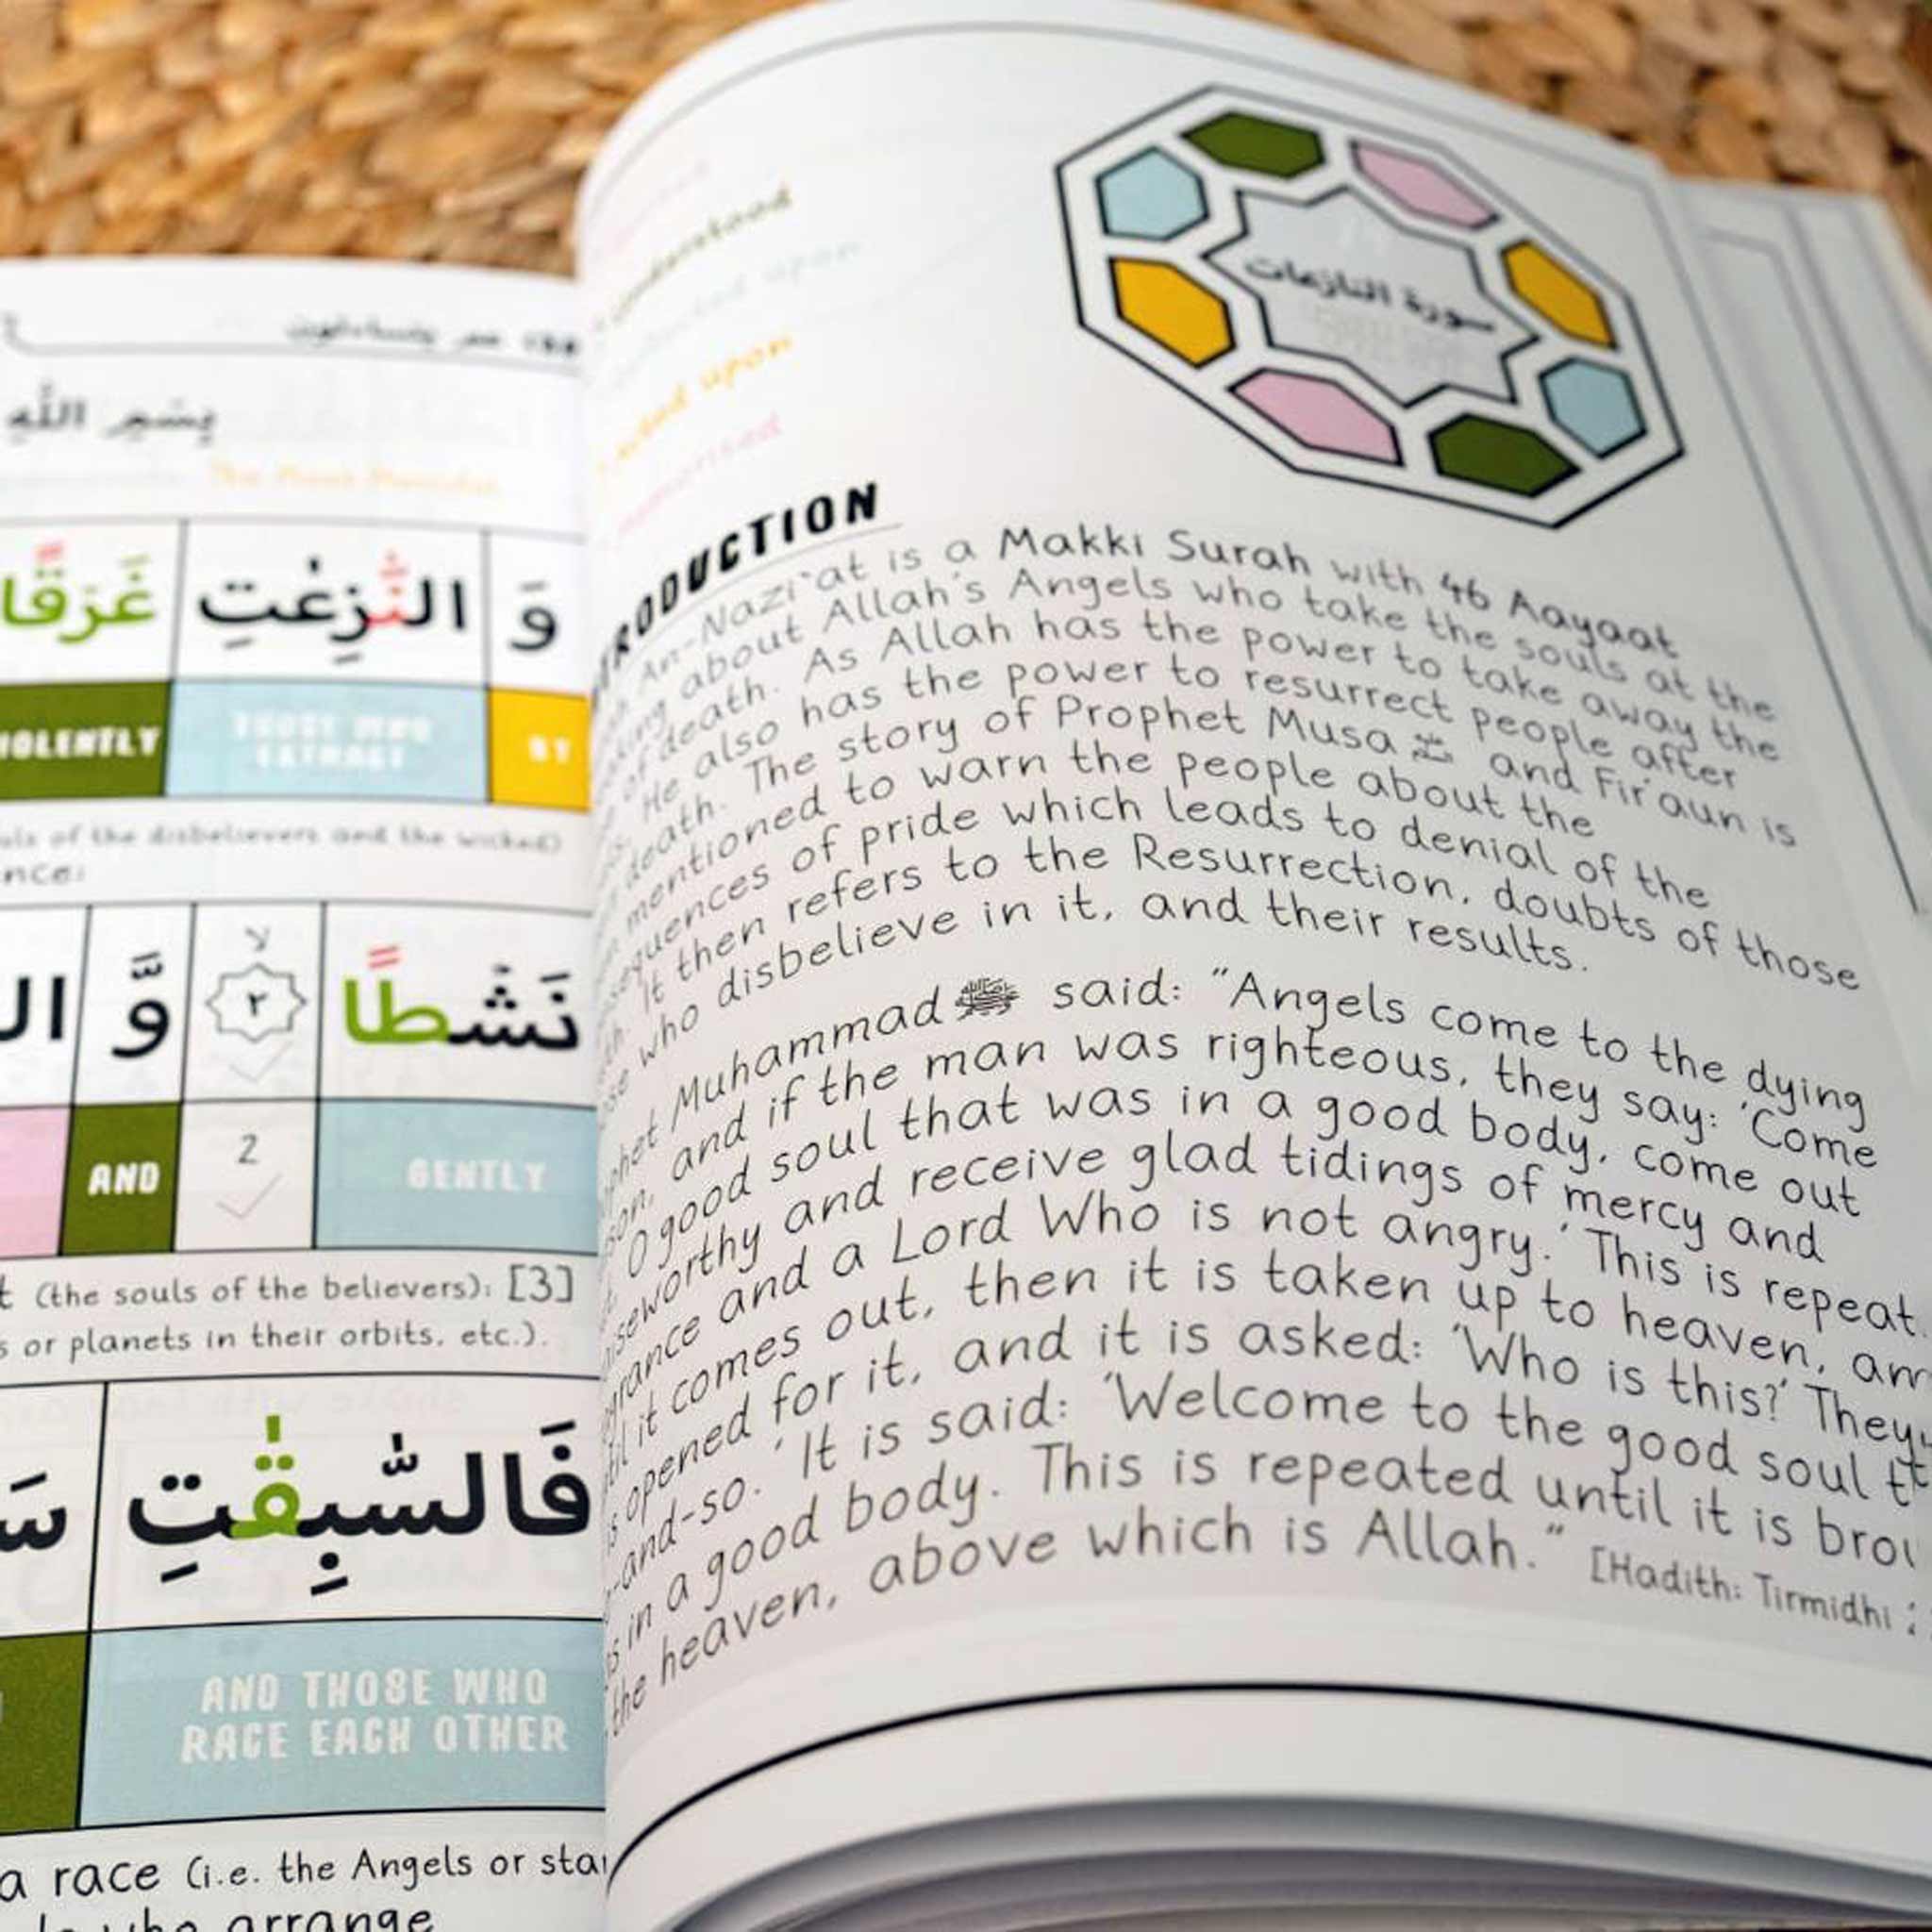 عم يتساءلون
بِسْمِ اللّٰهِ
The Most Merciful
وَ النّٰزِعٰتِ غَرْقًا
BY THOSE WHO EXTRACT
of the disbelievers and the wicked)
لا
نَشْطًا ٢ وَّ
AND 2 GENTLY
(the souls of the believers); [3]
or planets in their orbits, etc.).
فَالسّٰبِقٰتِ
AND THOSE WHO
RACE EACH OTHER
a race (i.e. the Angels or
who arrange
understood
upon
upon
سورة النازعات
An-Nazi`at is a Makki Surah with 46 Aayaat
about Allah's Angels who take the souls at the
of death. As Allah has the power to take away the
He also has the power to resurrect people after
death. The story of Prophet Musa and Fir'aun is
mentioned to warn the people about the
of pride which leads to denial of the
It then refers to the Resurrection, doubts of those
who disbelieve in it, and their results.
Muhammad ﷺ said: "Angels come to the dying
and if the man was righteous, they say: 'Come
O good soul that was in a good body, come out
and receive glad tidings of mercy and
and a Lord Who is not angry.' This is
it comes out, then it is taken up to heaven,
opened for it, and it is asked: 'Who is this?' They
-and-so.' It is said: 'Welcome to the good soul
in a good body. This is repeated until it is
the heaven, above which is Allah." [Hadith: Tirmidhi